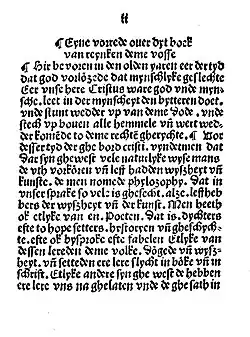 ii
¶ Eyne vorrede ouer dyt boek
van reynken deme vosse
¶ Hir be voren in den olden yaren eer der tyd
dat god vorlözede dat mynschlyke geslechte
Eer vnse here Cristus ware god vnde myn-
sche. leet in der mynscheyt den bytteren doet.
vnde stunt wedder vp van deme dode. vnde
steech vp bouen alle hemmele vñ wert wed-
der komēde to deme rechtē gherychte. ¶ Vor
desser tyd der ghe bord cristi. vyndetmen dat
dar syn ghewest vele naturlyke wyse mans
de vth vorkoren vñ leff hadden wyszheyt vñ
kunste. de men nomede phylosophy. Dat in
vnser sprake so vele is ghesecht. alze. leffheb
bers der wyszheyt vñ der kunst. Men heeth
ok etlyke van en. Poeten. Dat is. dychters
efte to hope setters. hystoryen vñ gheschych-
te. efte ok bysproke efte fabelen Etlyke van
dessen lereden deme volke. Dögede vñ wysz-
heyt. vñ setteden ere lere slycht in bökē vñ in
schrift. Etlyke andere syn ghe west de hebben
ere lere vns na ghelaten vnde de ghe sath in